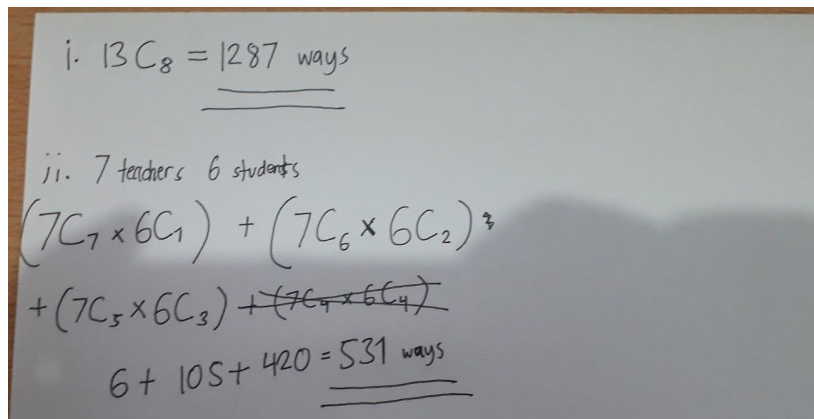 i. 13C₈ = 1287 ways
ii. 7 teachers 6 students
(7C₇ × 6C₁) + (7C₆ × 6C₂)
+ (7C₅ × 6C₃) + (7C₄ × 6C₄)
6 + 105 + 420 = 531 ways